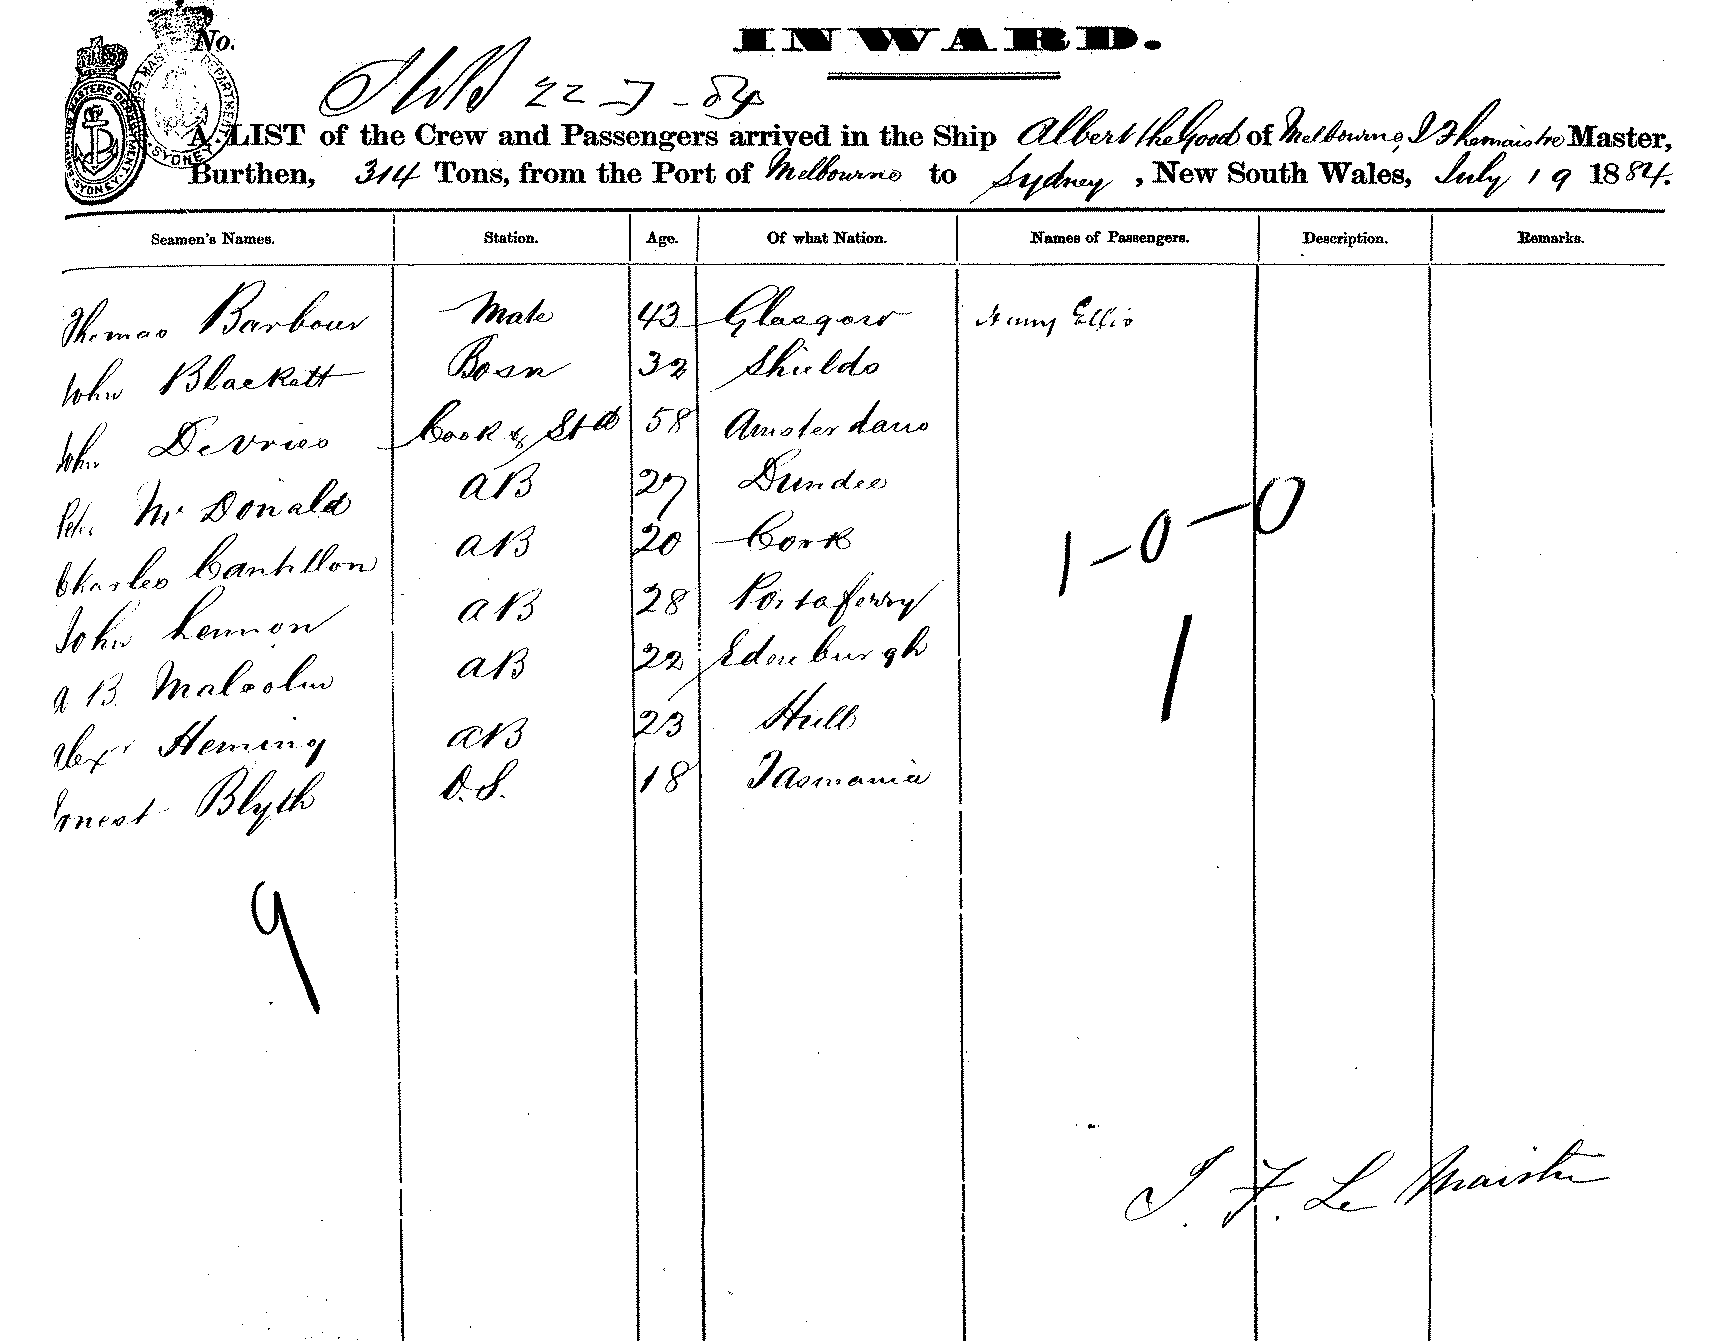 No.
INWARD.
22-7-84
A LIST of the Crew and Passengers arrived in the Ship Albert the Good of Melbourne, J F Lemaistre Master,
Burthen, 314 Tons, from the Port of Melbourne to Sydney, New South Wales, July 19 1884.
Seamen's Names. Station. Age. Of what Nation. Names of Passengers. Description. Remarks.
Thomas Barbour Mate 43 Glasgow Henry Ellis
John Blackett Bosn 32 Shields
John DeVries Cook & Std 58 Amsterdam
Peter Mc Donald AB 27 Dundee
Charles Cantillon AB 20 Cork
1-0-0
John Lennon AB 28 Portaferry
A B. Malcolm AB 22 Edenburgh
1
Alexr Heming AB 23 Hull
Ernest Blyth O.S. 18 Tasmania
9
J. F. Le Maistre